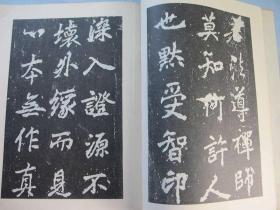 有法導禪師
莫知何許人
也默受智印
深入證源不
壞外緣而見
心本無作真